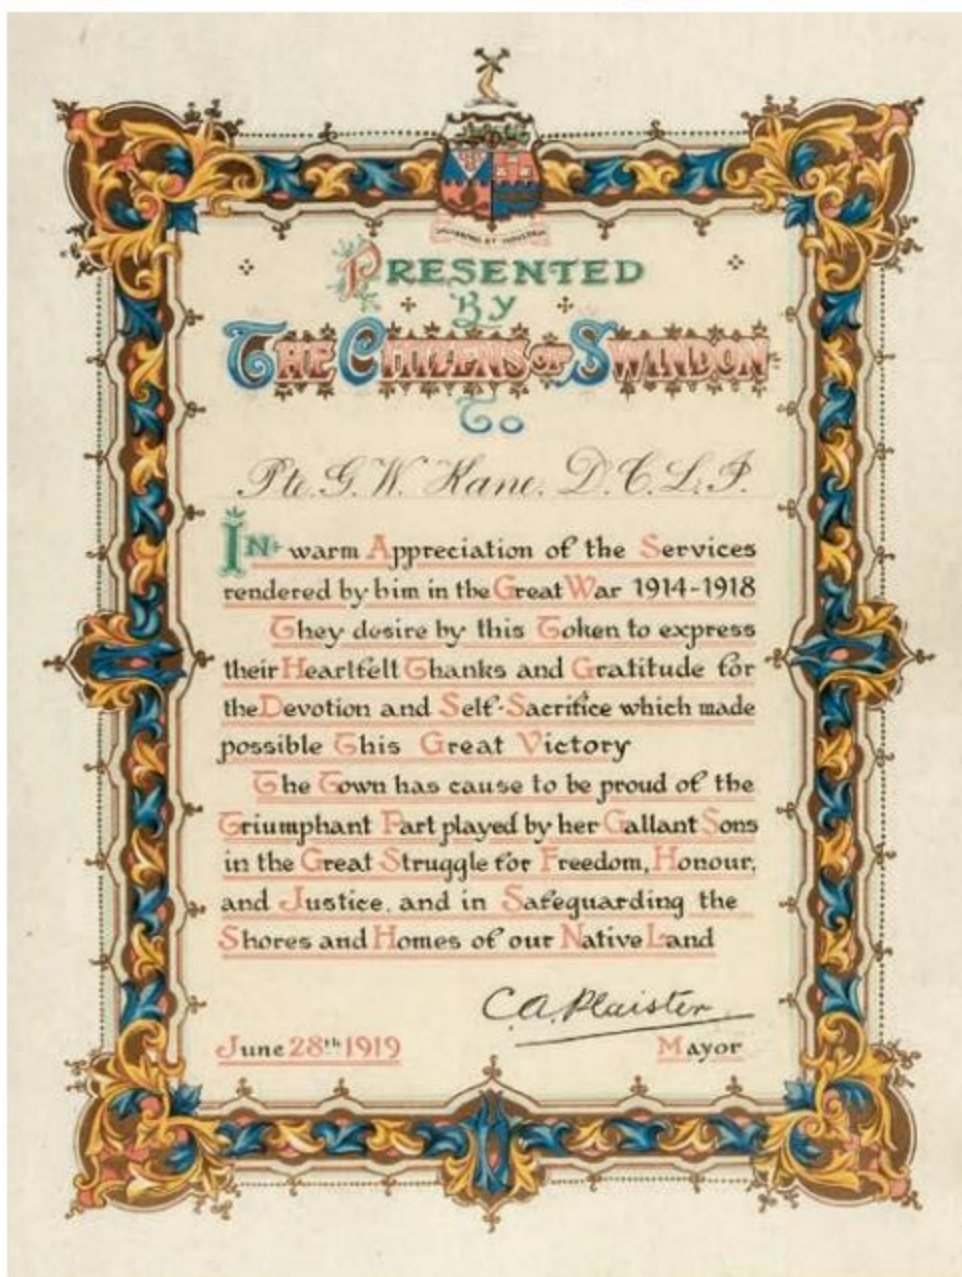 SALUBRITAS ET INDUSTRIA
PRESENTED
BY
THE CITIZENS OF SWINDON
To
Pte. G. W. Kane. D. C. L. I.
IN warm Appreciation of the Services
rendered by him in the Great War 1914-1918
They desire by this Token to express
their Heartfelt Thanks and Gratitude for
the Devotion and Self-Sacrifice which made
possible This Great Victory
The Town has cause to be proud of the
Triumphant Part played by her Gallant Sons
in the Great Struggle for Freedom, Honour,
and Justice, and in Safeguarding the
Shores and Homes of our Native Land
C.A. Plaister
June 28th 1919
Mayor